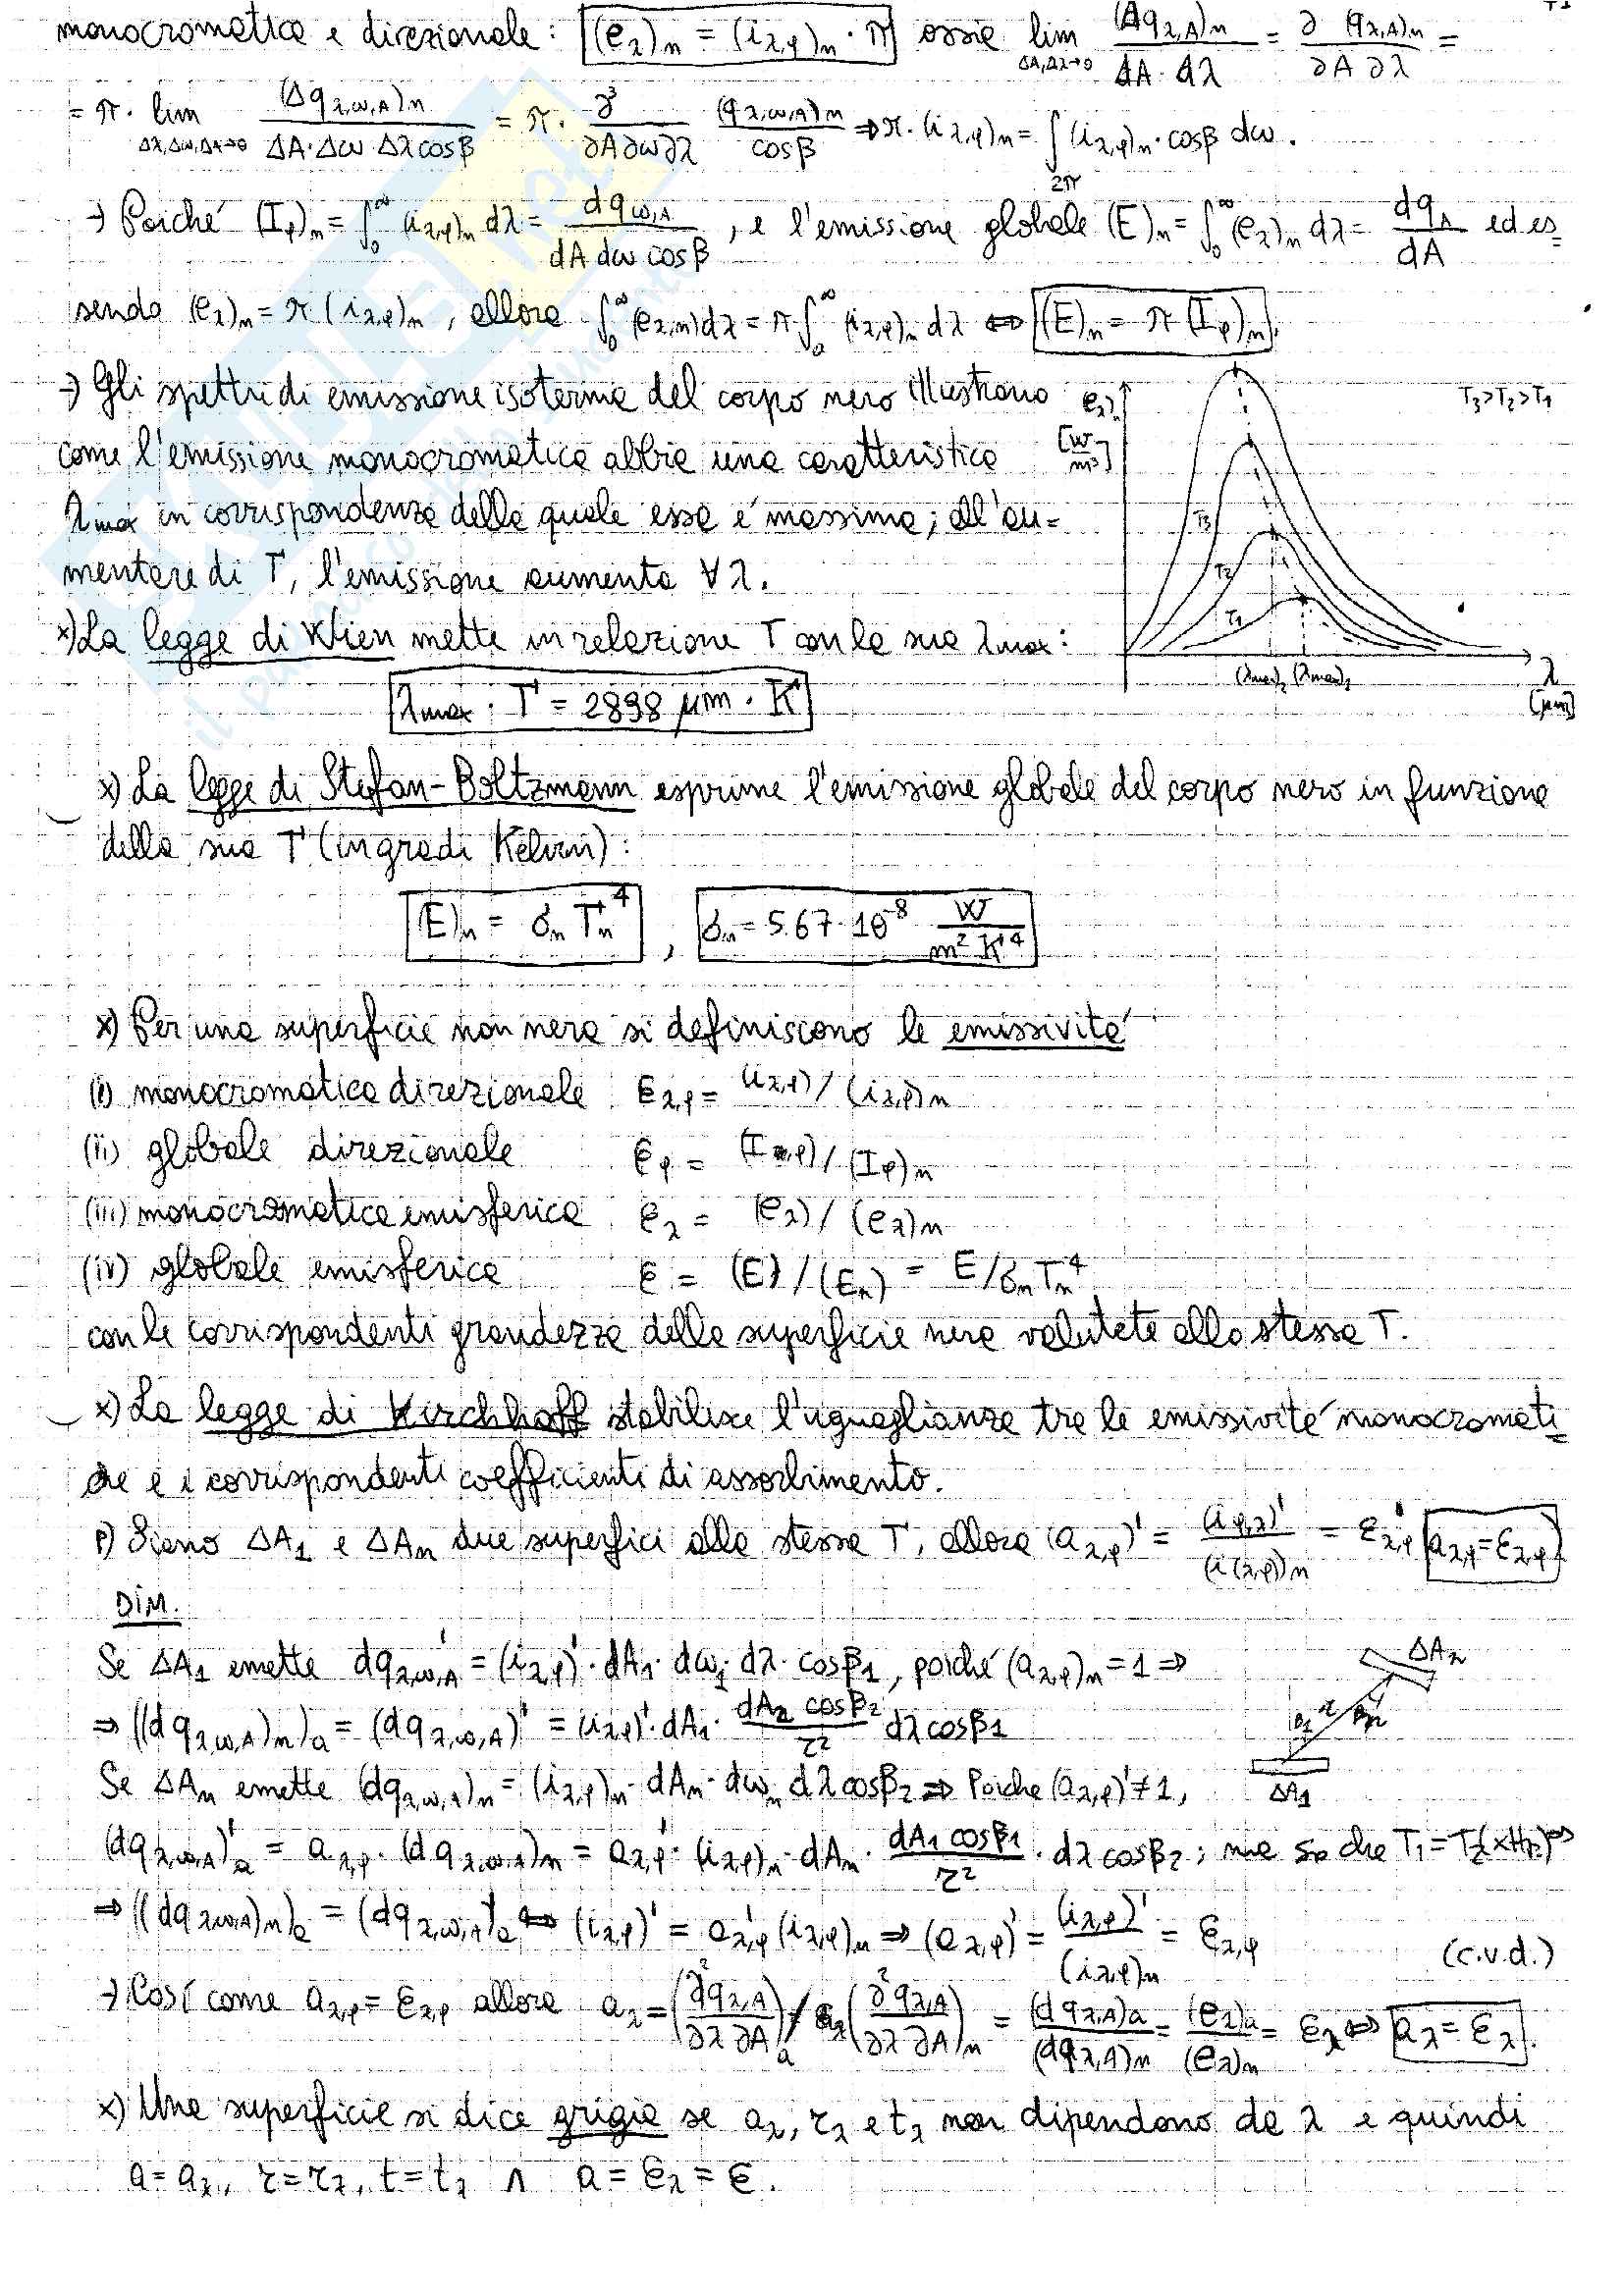 monocromatica e direzionale: (e_λ)_n = (i_λ,φ)_n · π ossia lim_{ΔA,Δλ→0} (Δq_λ,A)_n / ΔA·Δλ = ∂ (q_λ,A)_n / ∂A ∂λ =
= π · lim_{Δλ,Δω,ΔA→0} (Δq_λ,ω,A)_n / ΔA·Δω·Δλ cosβ = π · ∂³ / ∂A∂ω∂λ (q_λ,ω,A)_n / cosβ ⇒ π·(i_λ,φ)_n = ∫_{2π} (i_λ,φ)_n · cosβ dω.
→ Poiché (I_φ)_n = ∫_0^∞ (i_λ,φ)_n dλ = dq_ω,A / dA dω cosβ , e l'emissione globale (E)_n = ∫_0^∞ (e_λ)_n dλ = dq_A / dA ed es=
sendo (e_λ)_n = π (i_λ,φ)_n , allora ∫_0^∞ (e_λ,n) dλ = π ∫_0^∞ (i_λ,φ)_n dλ ⇔ (E)_n = π (I_φ)_n.
→ Gli spettri di emissione isoterma del corpo nero illustrano
come l'emissione monocromatica abbia una caratteristica
λ_max in corrispondenza della quale essa e' massima; all'au=
mentare di T, l'emissione aumenta ∀ λ.
e_λ [W/m³]
T₃>T₂>T₁
T₃
T₂
T₁
(λmax)₂ (λmax)₁
λ [μm]
x) La legge di Wien mette in relazione T con la sua λ_max:
λ_max · T = 2898 μm · K
x) La legge di Stefan-Boltzmann esprime l'emissione globale del corpo nero in funzione
della sua T (in gradi Kelvin):
(E)_n = σ_n T_n⁴ , σ_n = 5.67·10⁻⁸ W / m² K⁴
x) Per una superficie non nera si definiscono le emissività
(i) monocromatica direzionale ε_λ,φ = (i_λ,φ) / (i_λ,φ)_n
(ii) globale direzionale ε_φ = (I_φ) / (I_φ)_n
(iii) monocromatica emisferica ε_λ = (e_λ) / (e_λ)_n
(iv) globale emisferica ε = (E) / (E_n) = E / σ_n T_n⁴
con le corrispondenti grandezze della superficie nera valutate alla stessa T.
x) La legge di Kirchhoff stabilisce l'uguaglianza tra le emissività monocromati=
che e i corrispondenti coefficienti di assorbimento.
P) Siano ΔA₁ e ΔA_n due superfici alla stessa T, allora (a_λ,φ)' = (i_φ,λ)' / (i(λ,φ))_n = ε'_λ,φ a_λ,φ = ε_λ,φ
DIM.
Se ΔA₁ emette dq'_λ,ω,A = (i_λ,φ)'·dA₁·dω₁·dλ·cosβ₁, poiché (a_λ,φ)_n = 1 ⇒
⇒ ((dq_λ,ω,A)_n)_a = (dq_λ,ω,A)' = (i_λ,φ)'·dA₁· dA₂ cosβ₂ / r² dλ cosβ₁
Se ΔA_n emette (dq_λ,ω,A)_n = (i_λ,φ)_n·dA_n·dω_n dλ cosβ₂ ⇒ Poiche (a_λ,φ)' ≠ 1,
(dq_λ,ω,A)'_a = a'_λ,φ · (dq_λ,ω,A)_n = a'_λ,φ · (i_λ,φ)_n · dA_n · dA₁ cosβ₁ / r² · dλ cosβ₂ ; ma so che T₁ = T₂ (x Hp) ⇒
⇒ ((dq_λ,ω,A)_n)_a = (dq_λ,ω,A)'_a ⇔ (i_λ,φ)' = a'_λ,φ (i_λ,φ)_n ⇒ (a_λ,φ)' = (i_λ,φ)' / (i_λ,φ)_n = ε_λ,φ (c.v.d.)
→ Così come a_λ,φ = ε_λ,φ allora a_λ = (∂²q_λ,A / ∂λ ∂A)_a / (∂²q_λ,A / ∂λ ∂A)_n = (dq_λ,A)_a / (dq_λ,A)_n = (e_λ)_a / (e_λ)_n = ε_λ ⇔ a_λ = ε_λ.
x) Una superficie si dice grigia se a_λ, r_λ e t_λ non dipendono da λ e quindi
a = a_λ, r = r_λ, t = t_λ ∧ a = ε_λ = ε.